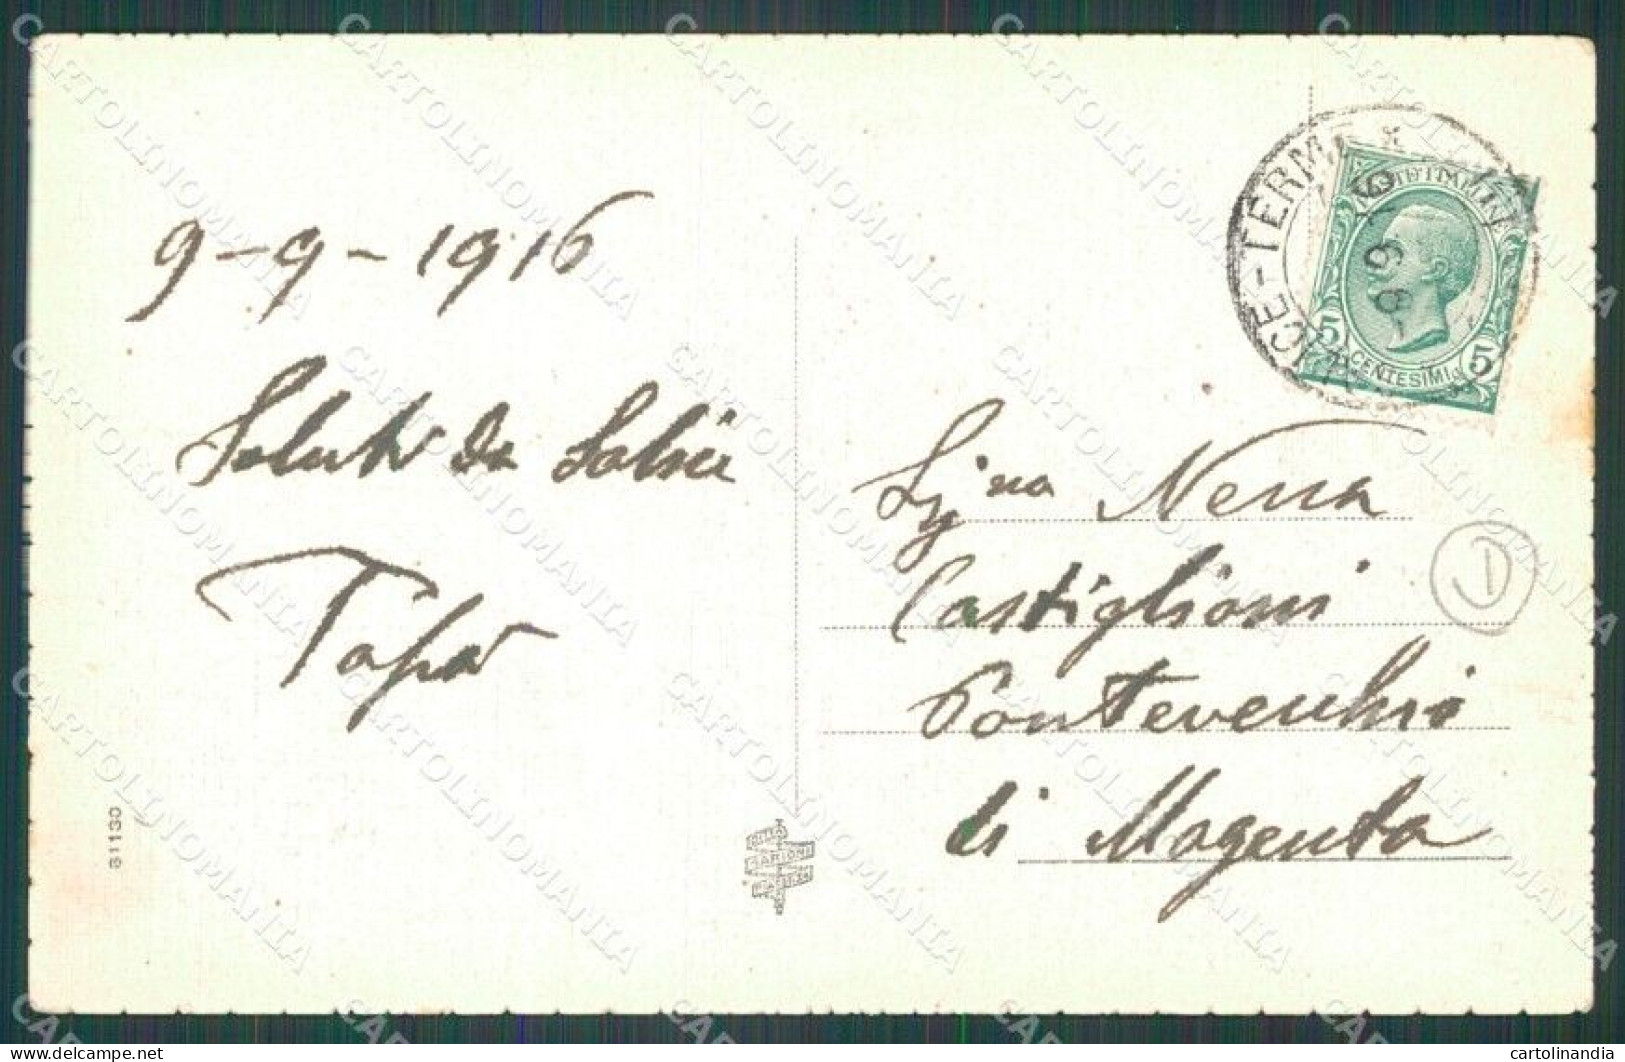 9-9-1916
Saluti da Salice
5 CENTESIMI 5
Sig.na Nena
Castiglioni
Pontevecchio
di Magenta
31130
CARTOLINOMANIA
delcampe.net
cartolinandia